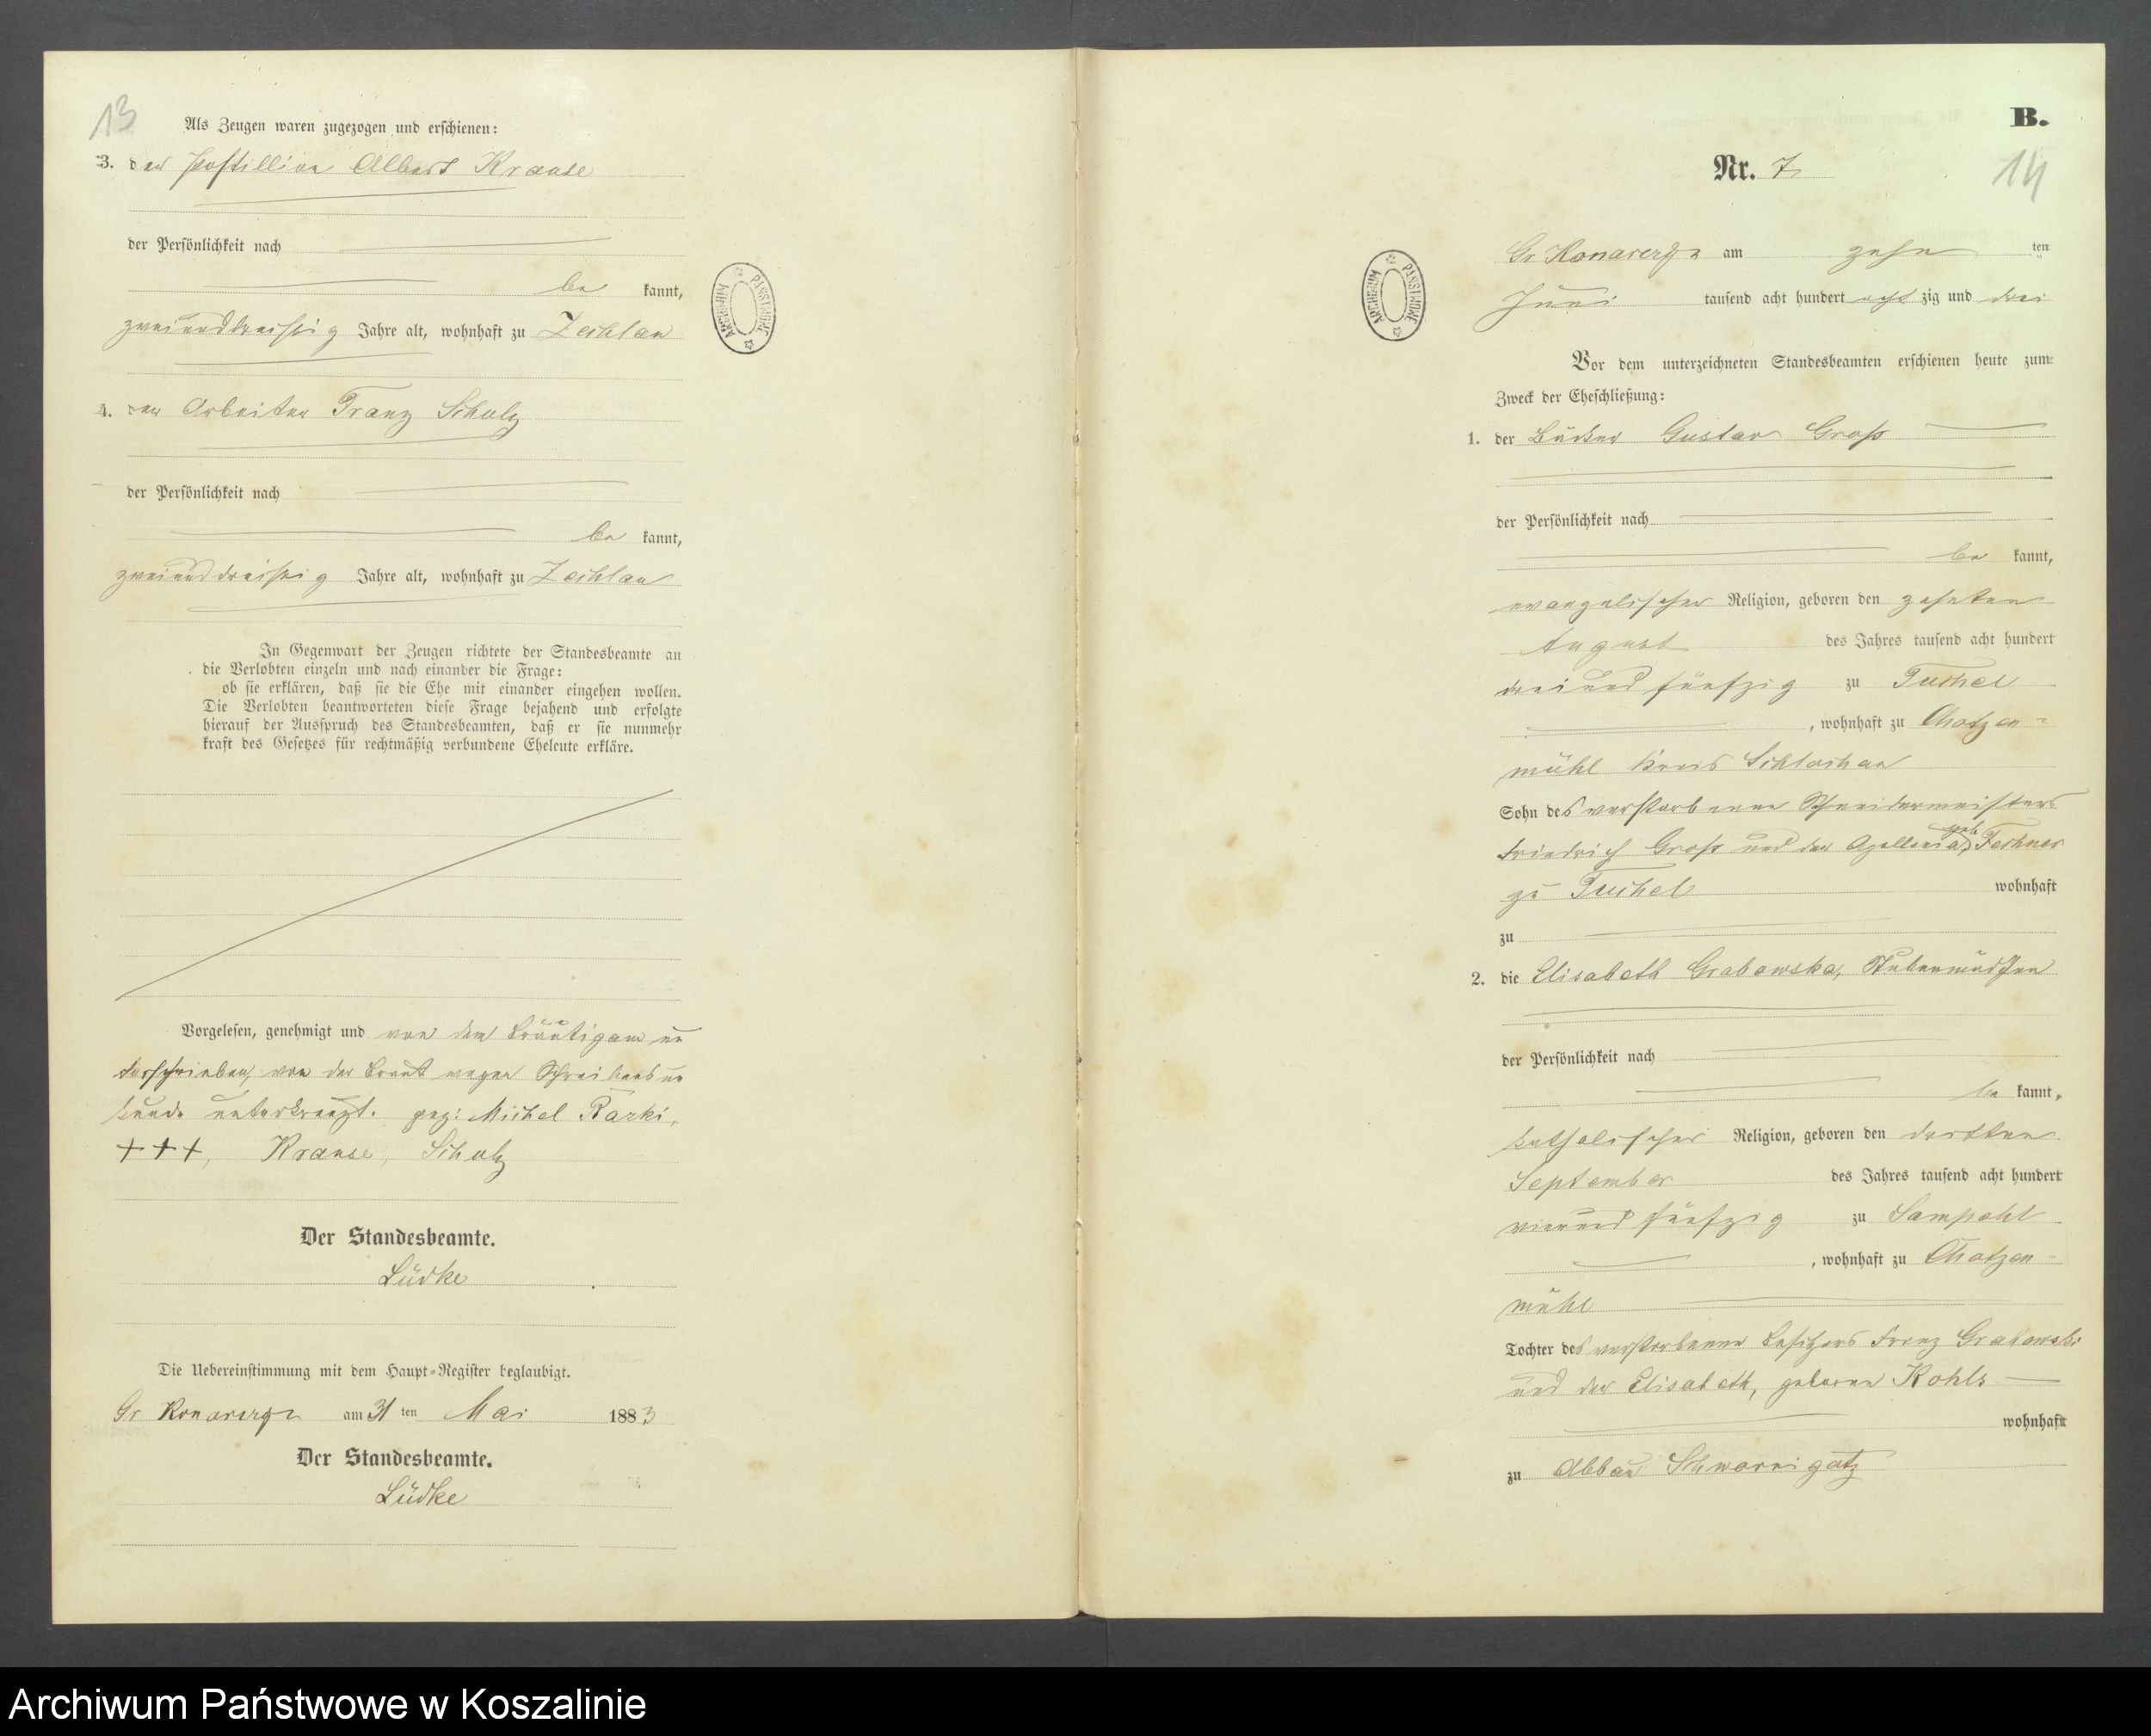 13
Als Zeugen waren zugezogen und erschienen:
3. der Postillion Albert Krause
der Persönlichkeit nach
be kannt,
zweiunddreißig Jahre alt, wohnhaft zu Zechlau
4. der Arbeiter Franz Schulz
der Persönlichkeit nach
be kannt,
zweiunddreißig Jahre alt, wohnhaft zu Zechlau
In Gegenwart der Zeugen richtete der Standesbeamte an
die Verlobten einzeln und nach einander die Frage:
ob sie erklären, daß sie die Ehe mit einander eingehen wollen.
Die Verlobten beantworteten diese Frage bejahend und erfolgte
hierauf der Ausspruch des Standesbeamten, daß er sie nunmehr
kraft des Gesetzes für rechtmäßig verbundene Eheleute erkläre.
Vorgelesen, genehmigt und von dem Bräutigam un
terschrieben, von der Braut wegen Schreibensun
kunde unterkreuzt. gez: Michel Razki,
+++, Krause, Schulz
Der Standesbeamte.
Lüdke
Die Uebereinstimmung mit dem Haupt-Register beglaubigt.
Gr Konarczyn am 31 ten Mai 1883
Der Standesbeamte.
Lüdke
ARCHIWUM PAŃSTWOWE
B.
Nr. 7
14
Gr Konarczyn am zehn ten
Juni tausend acht hundert acht zig und drei
ARCHIWUM PAŃSTWOWE
Vor dem unterzeichneten Standesbeamten erschienen heute zum
Zweck der Eheschließung:
1. der Bäcker Gustav Groß
der Persönlichkeit nach
be kannt,
evangelischer Religion, geboren den zehnten
August des Jahres tausend acht hundert
dreiund fünfzig zu Tuchel
, wohnhaft zu Chotzen-
mühl Kreis Schlochau
Sohn des verstorbenen Schneidermeisters
Friedrich Groß und der Apollonia, geb Fechner
zu Tuchel wohnhaft
zu
2. die Elisabeth Grabowska, Stubenmädchen
der Persönlichkeit nach
be kannt,
katholischer Religion, geboren den dritten
September des Jahres tausend acht hundert
vierund fünfzig zu Sampohl
, wohnhaft zu Chotzen-
mühl
Tochter des verstorbenen Besitzers Franz Grabowski
und der Elisabeth, geborene Kohls
wohnhaft
zu Abbau Schwornigatz
Archiwum Państwowe w Koszalinie